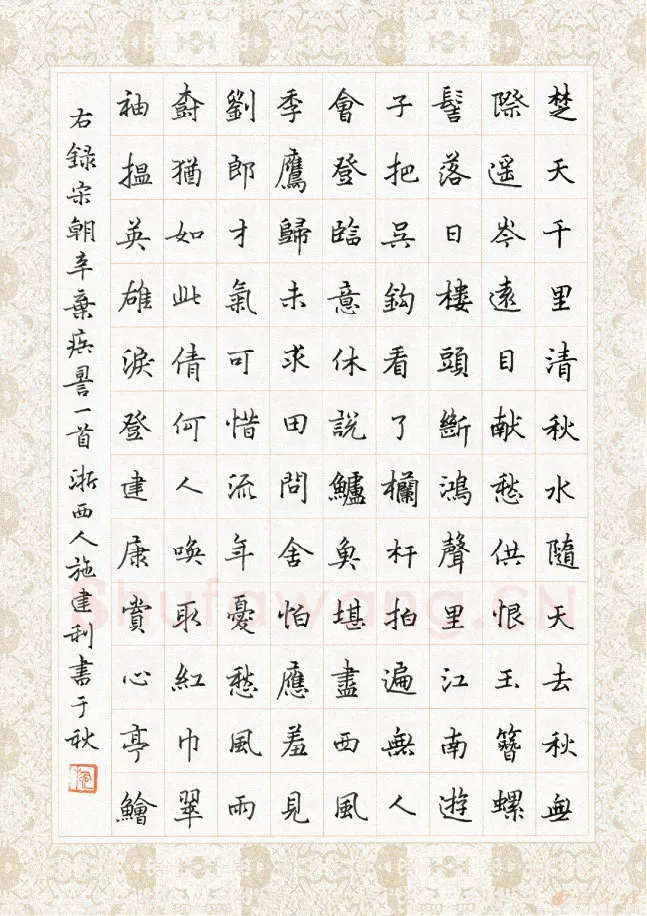 楚天千里清秋水隨天去秋無
際遥岑遠目献愁供恨玉簪螺
髻落日樓頭斷鴻聲里江南遊
子把吳鈎看了欄杆拍遍無人
會登臨意休説鱸魚堪盡西風
季鷹歸未求田問舍怕應羞見
劉郎才氣可惜流年憂愁風雨
樹猶如此倩何人唤取紅巾翠
袖揾英雄淚登建康賞心亭鱠
右録宋朝辛棄疾一首 浙西人施建利書于秋
Shufawang.CN